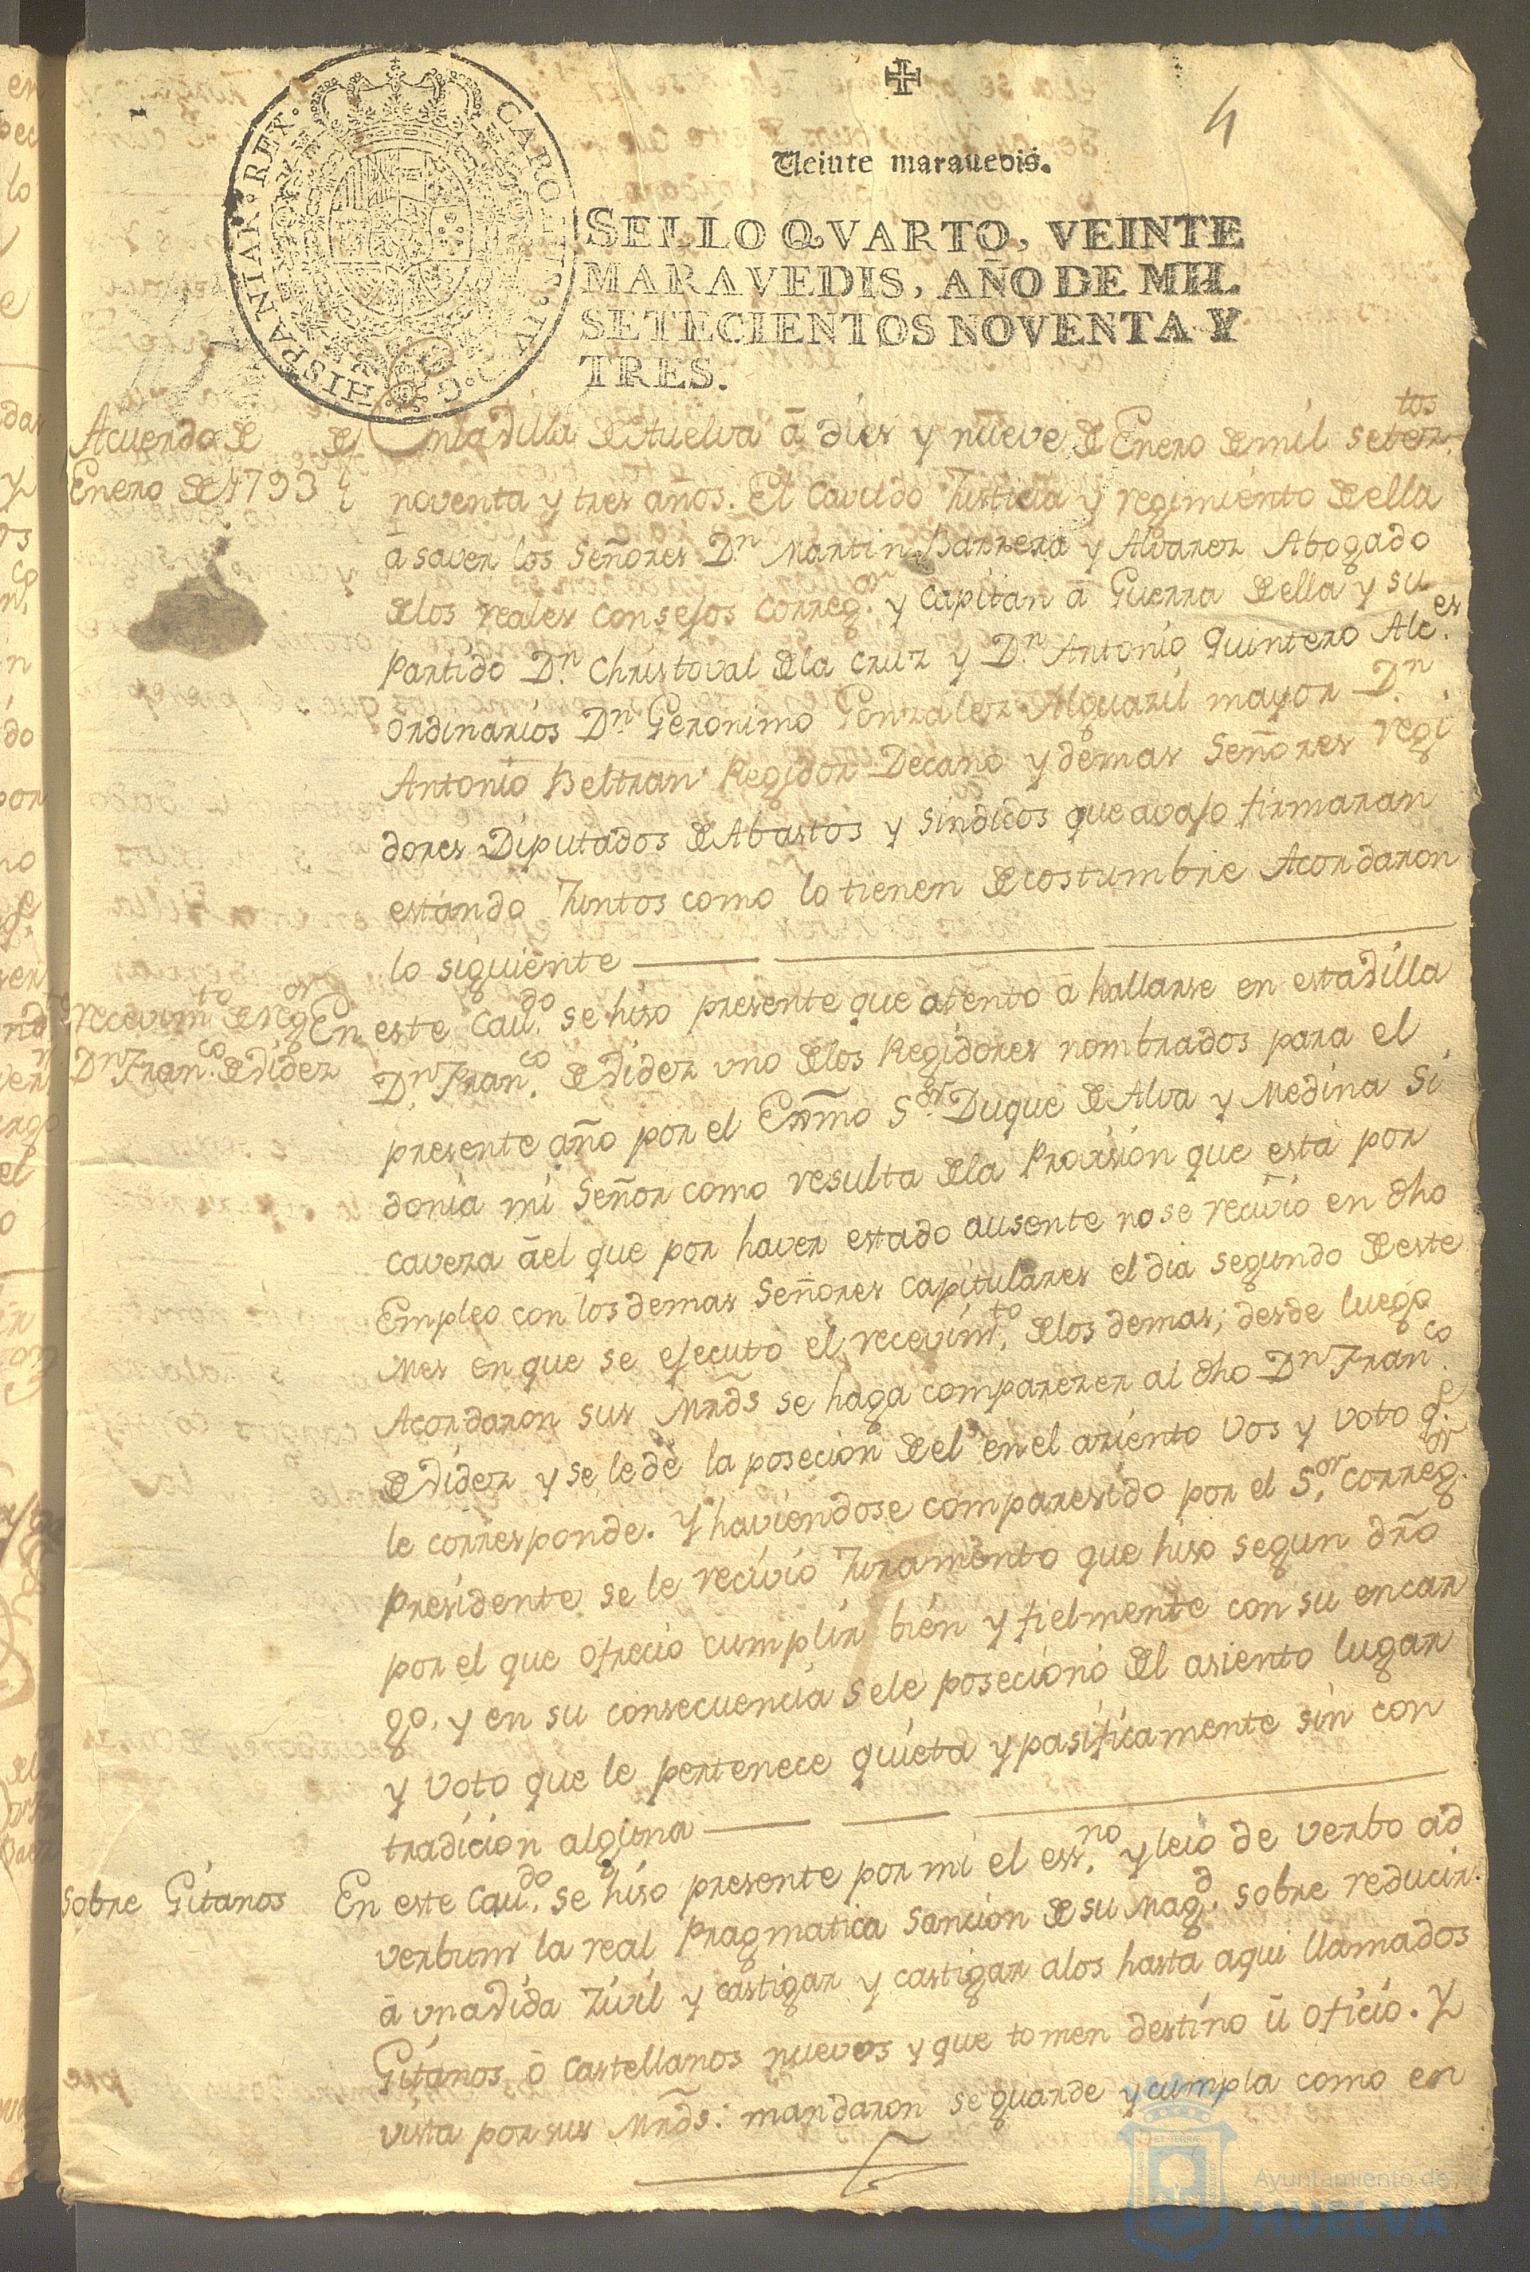 4
Veinte maravedis.
CAROLUS · IV · D · G · HISPANIAR · REX ·
SELLO QVARTO, VEINTE
MARAVEDIS, AÑO DE MIL
SETECIENTOS NOVENTA Y
TRES.
Acuerdo de de
Enero de 1793
En la Villa de Huelva â dies y nueve de Enero de mil setez.tos
noventa y tres años. El Cavildo Justicia y regimiento de ella
â saver los Señores Dn. Martin Barrera y Alvarez Abogado
de los reales consejos correg.or y capitan â Guerra de ella y su
partido Dn. Christoval de la Cruz y Dn. Antonio Quintero Alc.es
ordinarios Dn. Geronimo Gonzalez Alguazil mayor Dn.
Antonio Beltran Regidor Decano y demas Señores regi
dores Diputados de Abastos y sindicos que avajo firmaran
estando Juntos como lo tienen de costumbre Acordaron
lo siguiente
recevim.to de reg.or
Dn. Fran.co de Videz
En este Cau.do se hiso presente que atento â hallarse en esta Villa
Dn. Fran.co de Videz uno de los Regidores nombrados para el
presente año por el Exmo S.or Duque de Alva y Medina Si
donia mi Señor como resulta de la Provision que está por
caveza âel que por haver estado ausente no se recivio en dho
Empleo con los demas Señores capitulares el dia segundo de este
Mes en que se efecuto el recevim.to de los demas; desde luego
Acordaron sus Mrds se haga comparezer al dho Dn. Fran.co
de Videz y se le dé la posecion de el en el aziento vos y voto q.e
le corresponde. Y haviendose comparesido por el S.or Correg.or
Presidente se le recivio Juramento que hiso segun dro
por el que ofrecio cumplir bien y fielmente con su encar
go, y en su consecuencia se le posecionó del asiento lugar
y voto que le pertenece quieta y pasificamente sin con
tradicion alguna
Sobre Gitanos
En este Cau.do se hiso presente por mi el ess.no y leio de verbo ad
verbum la real Pragmatica Sancion de su Mag.d sobre reducir
â una vida Zivil y castigar y castigar a los hasta aqui llamados
Gitanos ô Castellanos nuevos y que tomen destino û oficio. Y
vista por sus Mrds: mandaron se guarde y cumpla como en
Ayuntamiento de
HUELVA